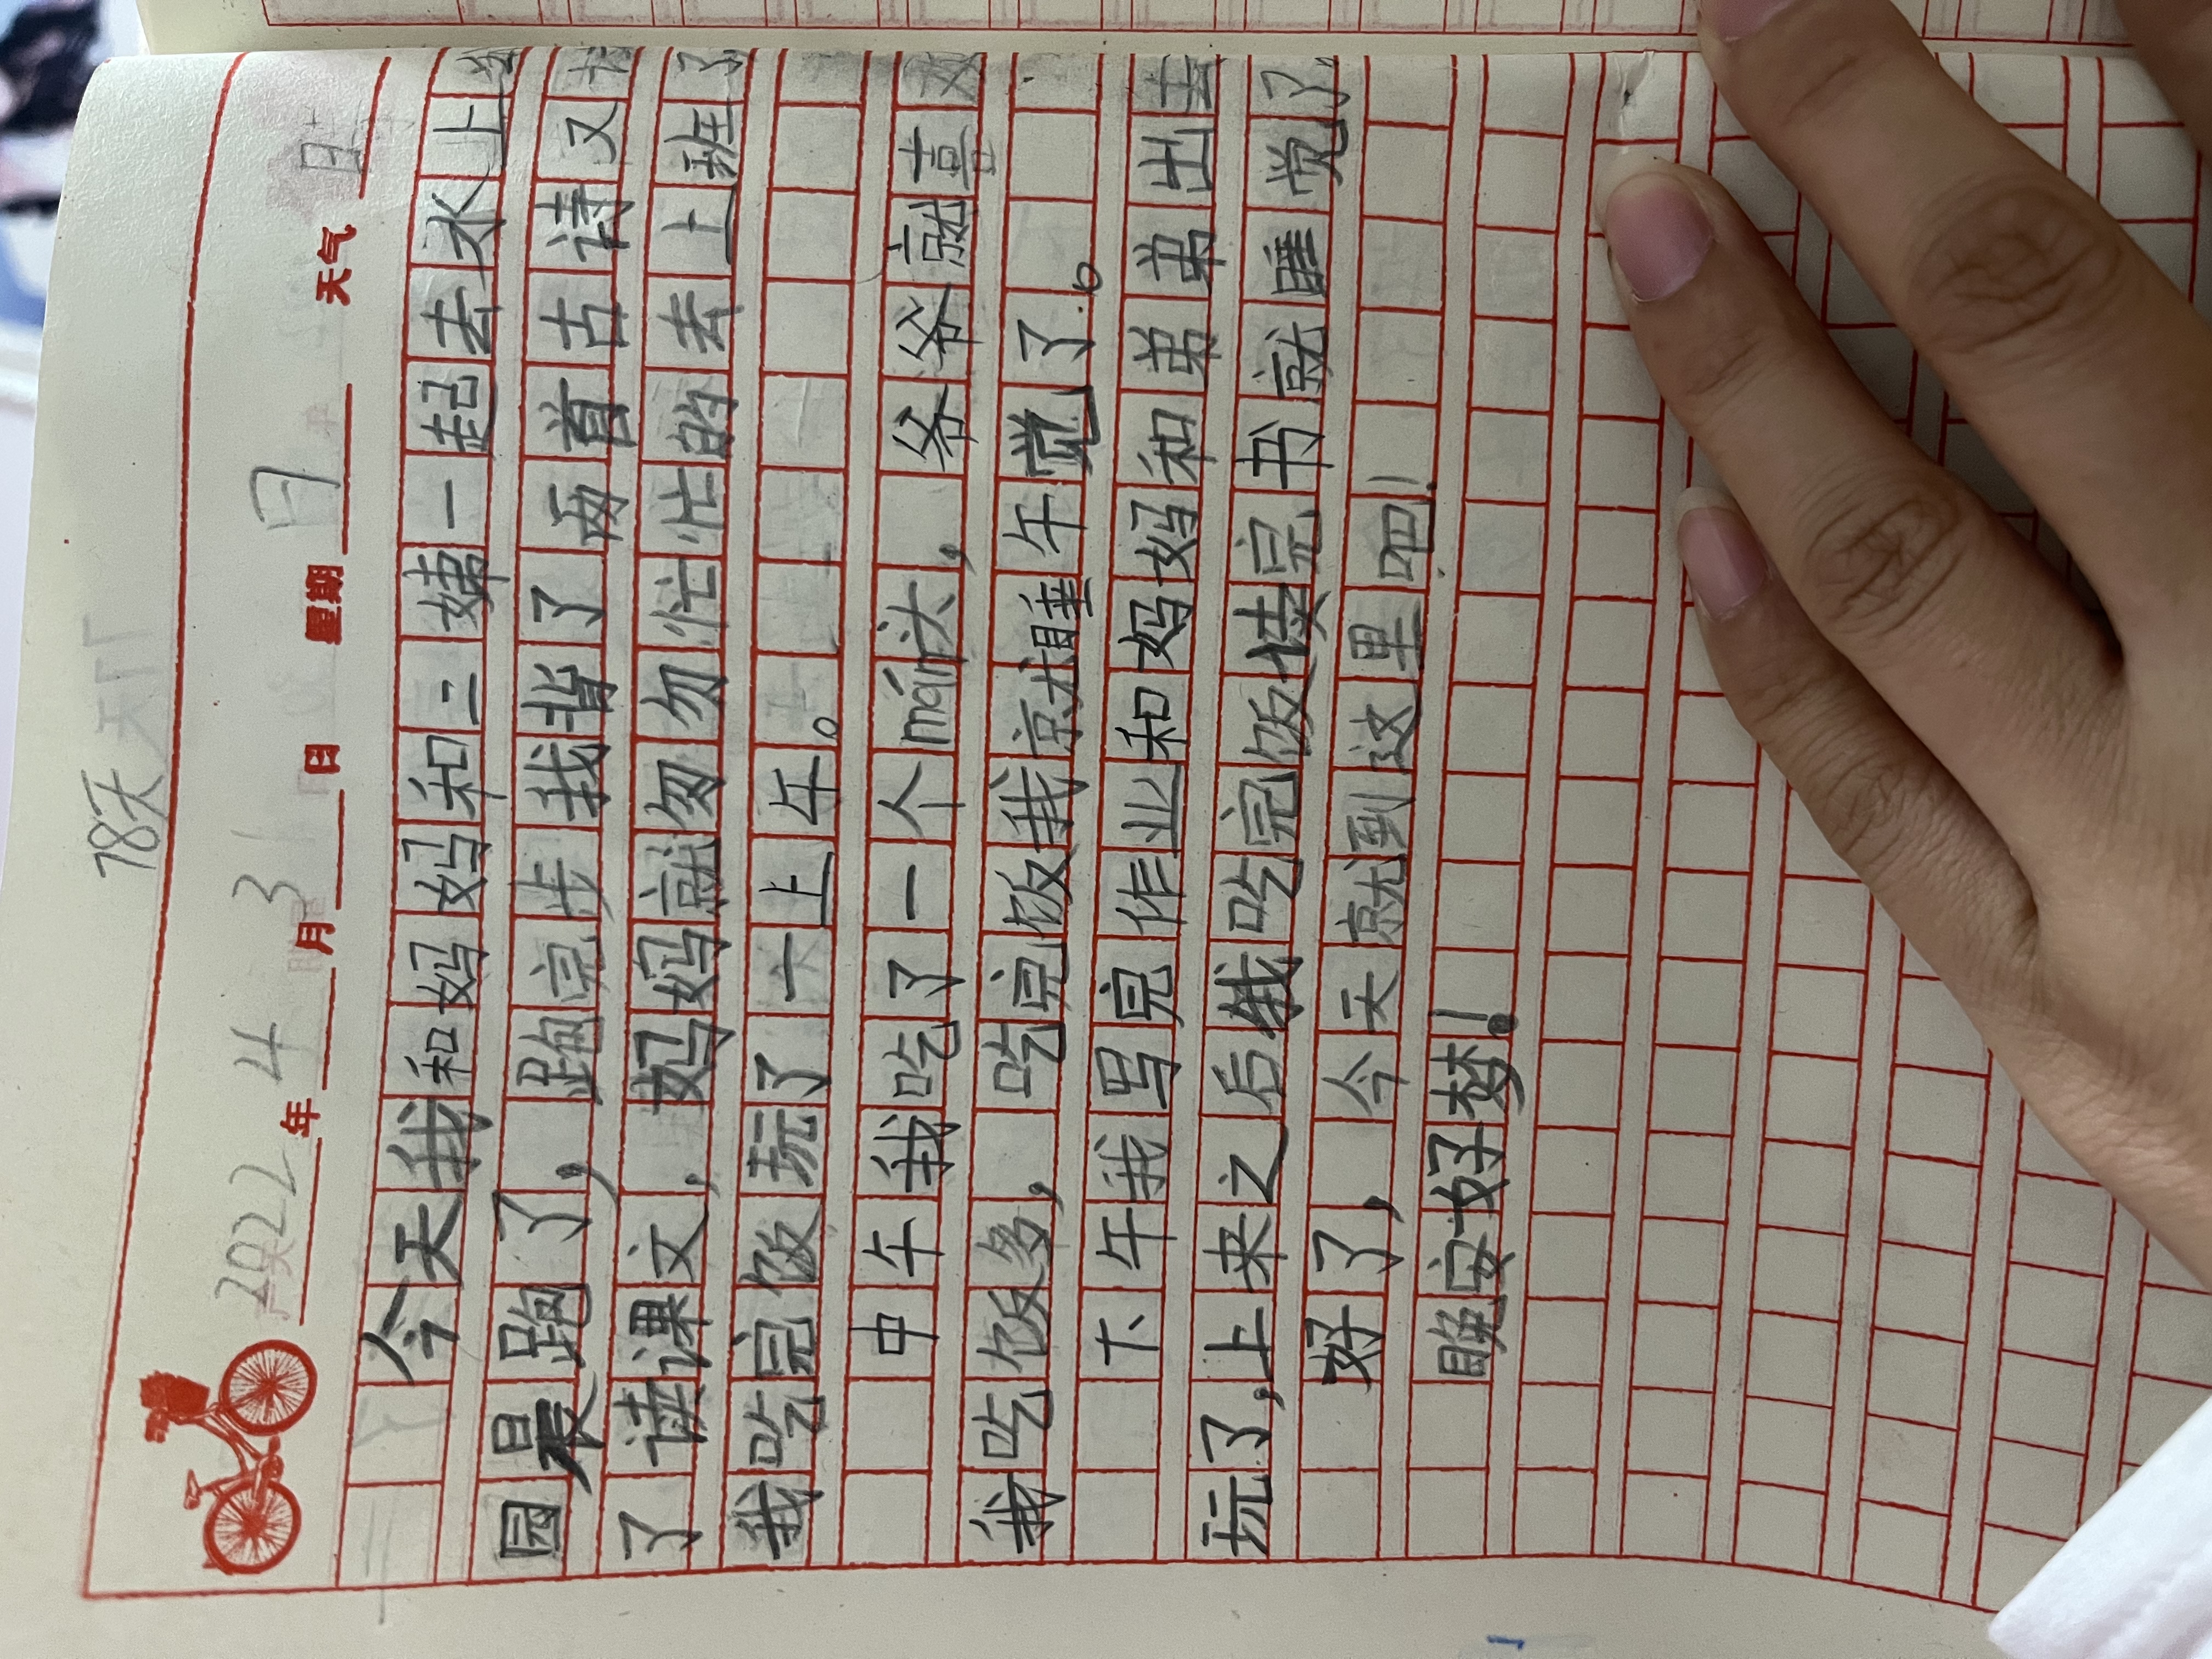 78天
2022年4月3日 星期日 天气
今天我和妈妈和二婶一起去水上
园晨跑了，跑完步我背了两首古诗又
了读课文，妈妈就匆匆忙忙的去上班了
我吃完饭玩了一上午。
中午我吃了一个mán头，爷爷就喜
我吃饭多，吃完饭我就睡午觉了。
下午我写完作业和妈妈和弟弟出去
玩了，上来之后我吃完饭读完书就睡觉了
好了，今天就到这里吧！
晚安好梦！